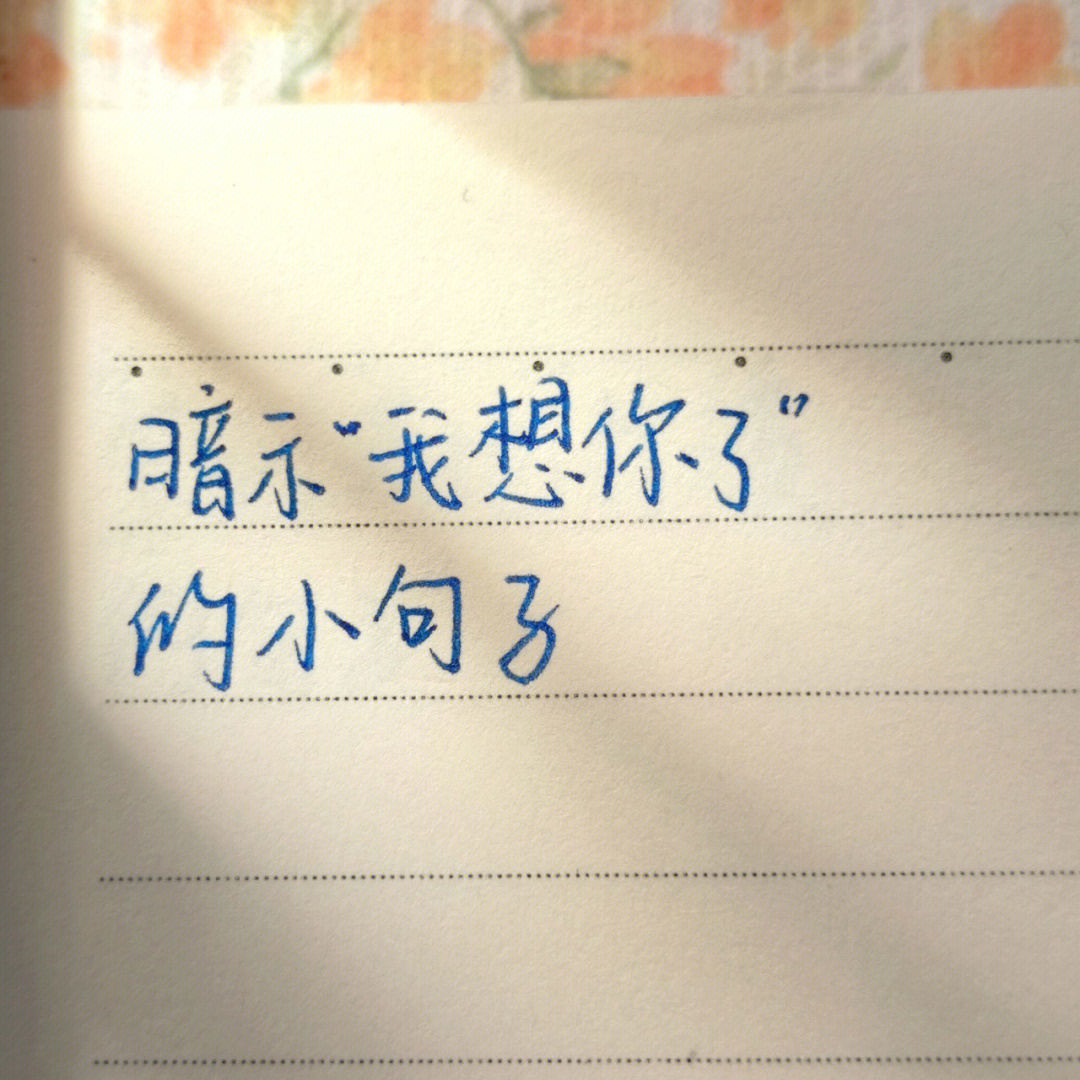 暗示“我想你了”
的小句子